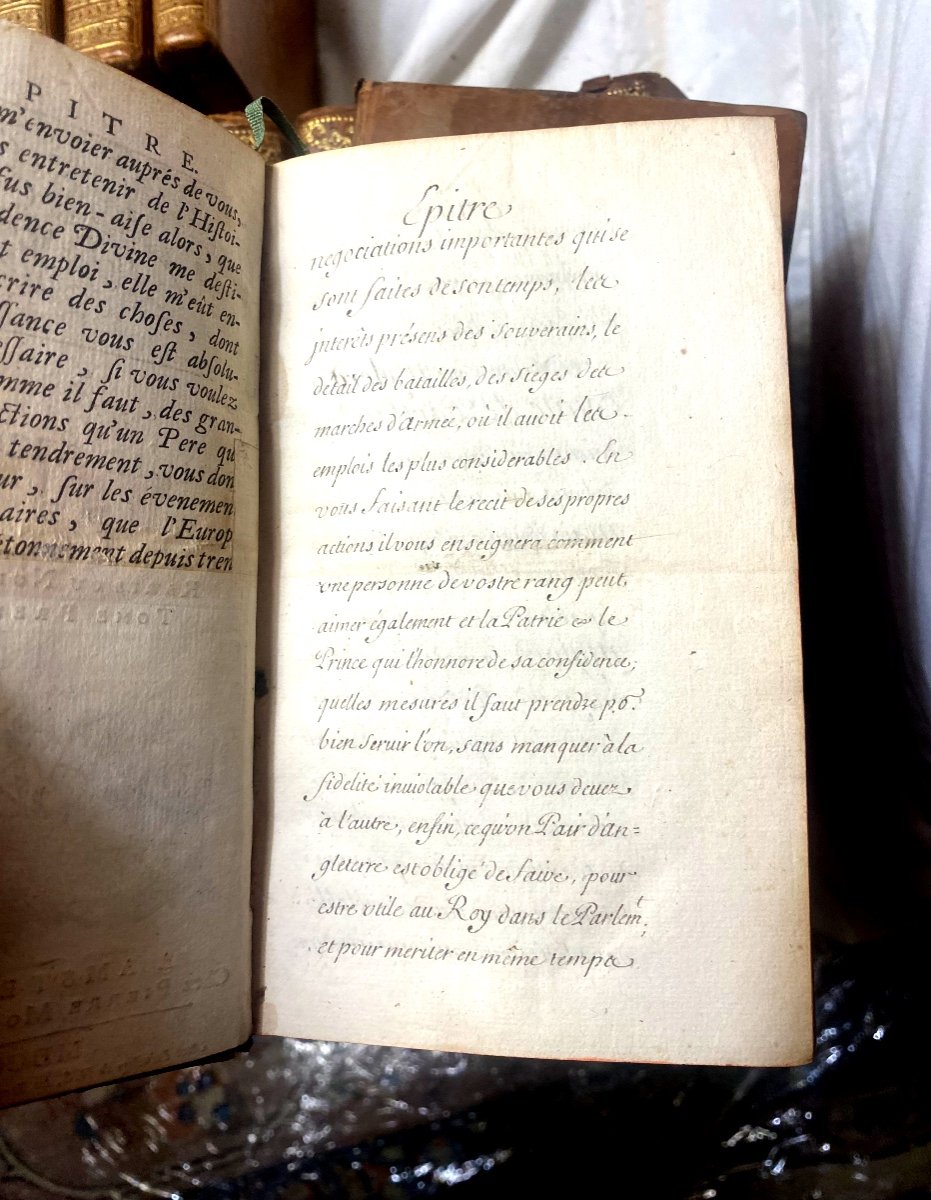 PITRE.
m'envoier auprés de vous,
s entretenir de l'Histoi-
fus bien-aise alors, que
dence Divine me desti-
t emploi, elle m'eût en-
crire des choses, dont
ssance vous est absolu-
essaire, si vous voulez
mme il faut, des gran-
ctions qu'un Pere qu
tendrement, vous don
ur, sur les évenemen
aires, que l'Europ
étonnement depuis tren
Epitre
negociations importantes qui se
sont faites de son temps, les
interêts présens des Souverains, le
détail des batailles, des sieges des
marches d'armée, où il avoit les
emplois les plus considerables. En
vous faisant le recit de ses propres
actions il vous enseignera comment
vne personne de vostre rang peut,
aimer également et la Patrie & le
Prince qui l'honnore de sa confidence,
quelles mesures il faut prendre po.r
bien servir l'vn, sans manquer à la
fidelité inviolable que vous devez
à l'autre, enfin, ce qu'vn Pair d'an=
gleterre est obligé de faire, pour
estre vtile au Roy dans le Parlem.t;
et pour meriter en même temps